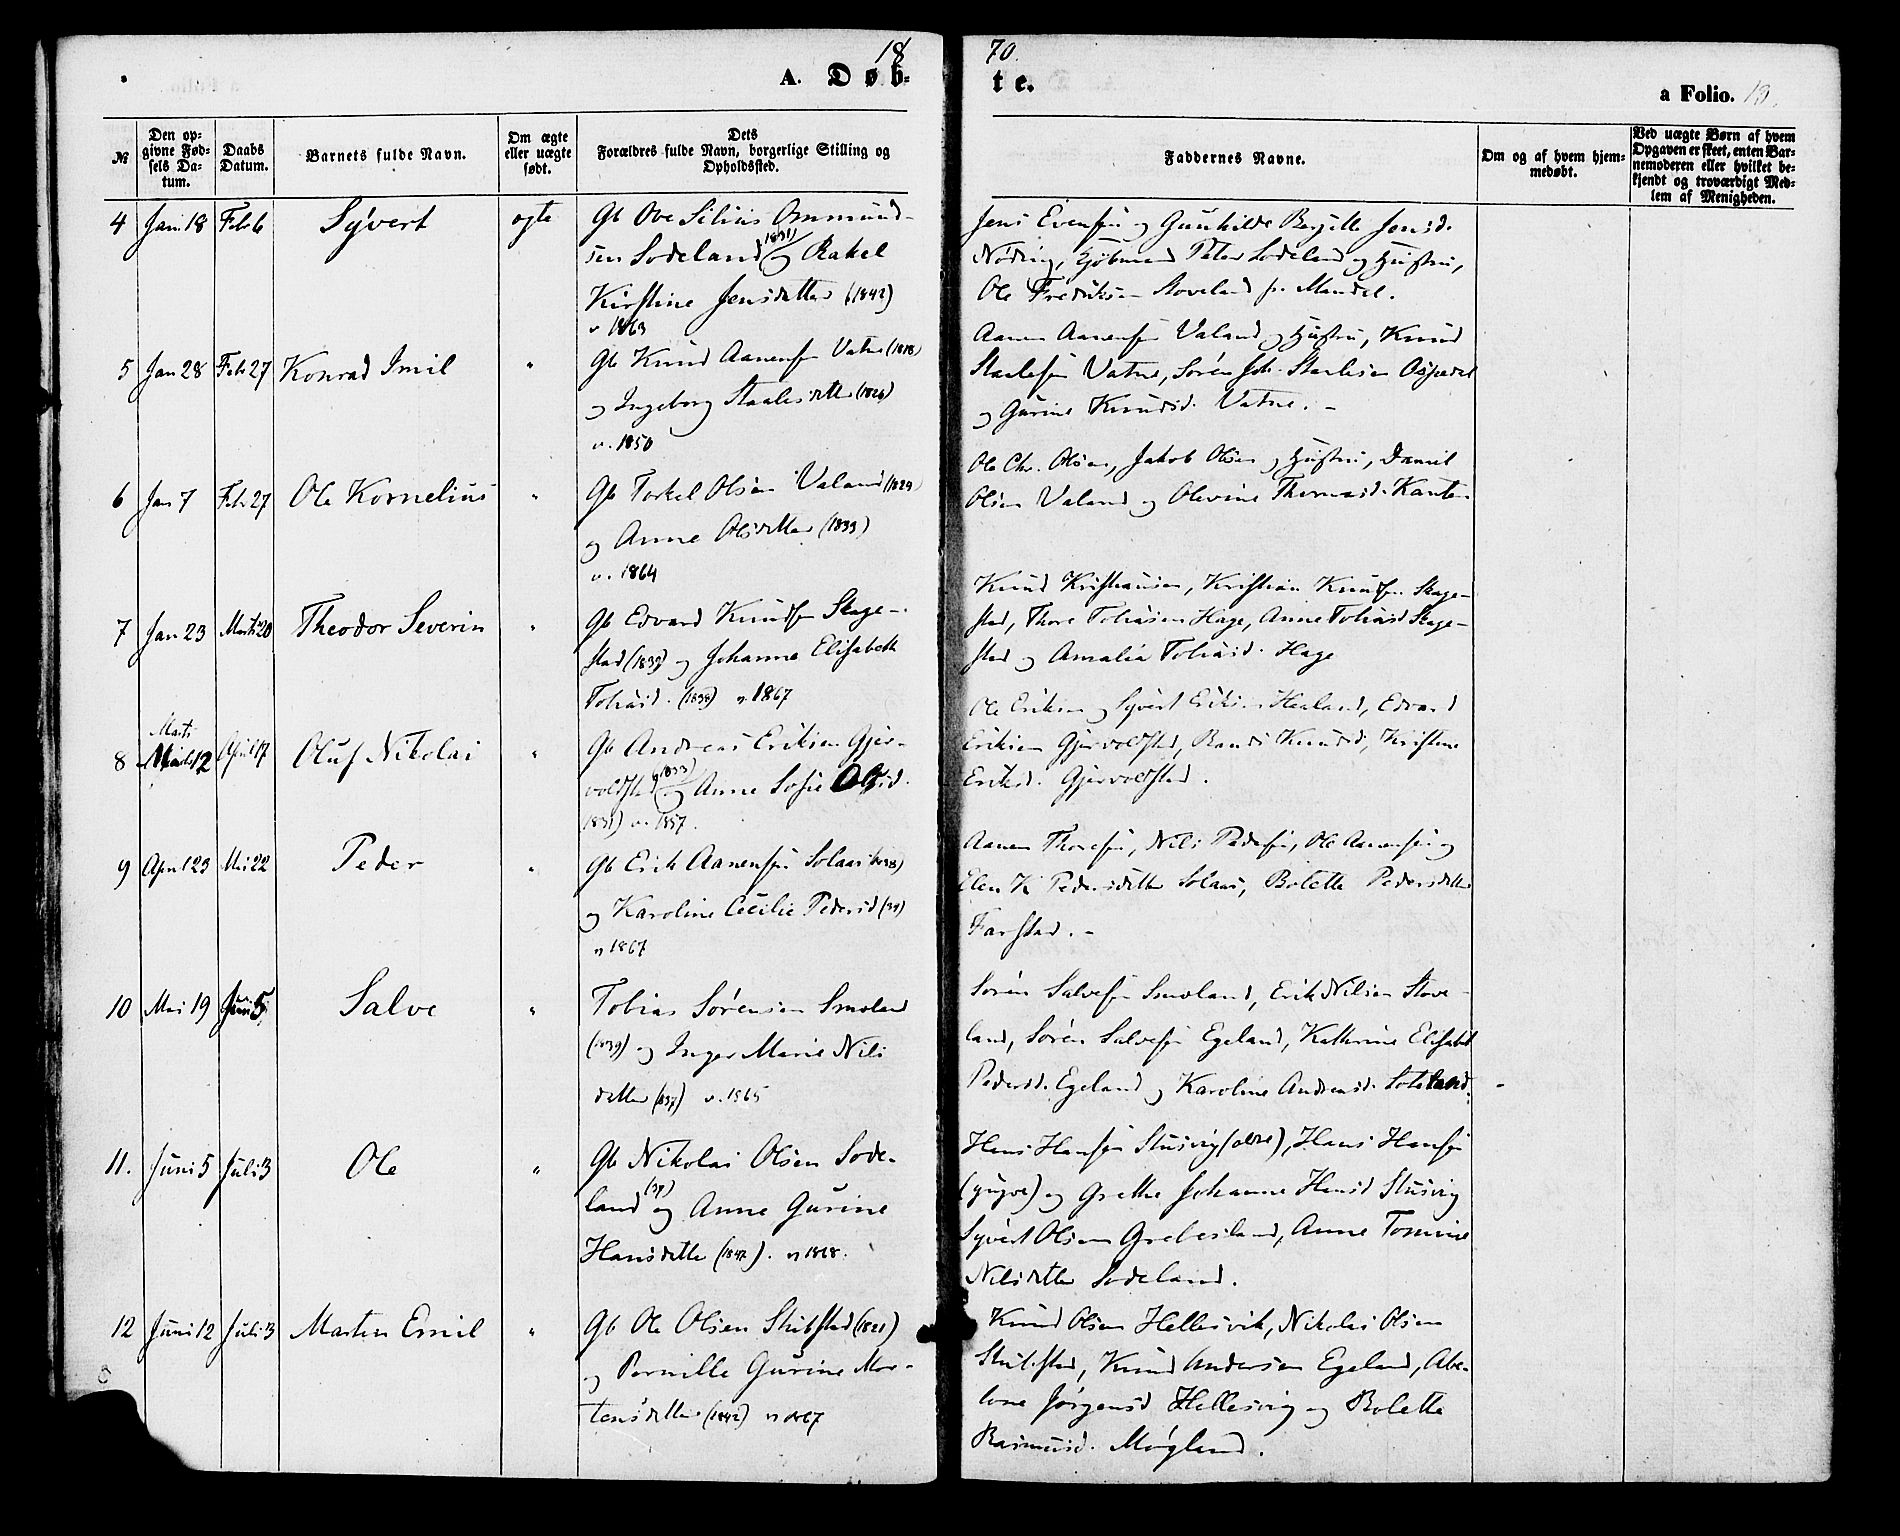 18
70.
A. Døb-
te.
a Folio. 13.
№
Den op-
givne Fød-
sels Da-
tum.
Daabs
Datum.
Barnets fulde Navn.
Om ægte
eller uægte
født.
Dets
Forældres fulde Navn, borgerlige Stilling og
Opholdssted.
Faddernes Navne.
Om og af hvem hjem-
medøbt.
Ved uægte Børn af hvem
Opgaven er skeet, enten Bar-
nemoderen eller hvilket be-
kjendt og troværdigt Med-
lem af Menigheden.
4 Jan. 18 Feb 6 Syvert ægte
Gb Ove Silius Ommund-
sen Sodeland (1831) og Rakel
Kirstine Jensdatter (1842)
v 1863
Jens Evensen og Gunhilde Bergitte Jensd.
Nøding, Peter Sodeland og Hustru,
Ole Fredriksen Stoveland fr. Mandal.
5 Jan 28 Feb 27 Konrad Imil "
Gb Knud Aanensen Vatne (1818)
og Ingeborg Staalesdatter (1826)
v. 1850
Aanen Aanensen Valand og Hustru, Knud
Staalesen Vatne, Søren Joh. Staalesen
og Gurine Knudsd. Vatne. -
6 Jan 7 Feb 27 Ole Kornelius "
Gb Torkel Olsen Valand (1829)
og Anne Olsdatter (1833)
v. 1864
Ole Chr. Olsen, Jakob Olsen og Hustru, Daniel
Olsen Valand og Olevine Thomasd.
7 Jan 23 Marts 20 Theodor Severin "
Gb Edvard Knudsen Skage-
stad (1839) og Johanne Elisabeth
Tobiasd. (1838) v. 1867
Knud Kristiansen, Kristian Knudsen Skage-
stad, Thore Tobiasen Hage, Anne Tobiasd Skage-
stad og Amalia Tobiasd. Hage
8 Marts 12 April 17 Oluf Nikolai "
Gb Andreas Eriksen Gjer-
voldstad (1833) og Anne Sofie Olsd.
1831) v. 1857.
Ole Eriksen og Syvert Eriksen Heeland, Edvard
Eriksen Gjervoldstad, Randi Knudsd, Kristine
Eriksd. Gjervoldstad.
9 April 23 Mai 22 Peder "
Gb Erik Aanensen Solaas (1838)
og Karoline Cecilie Pedersd (39)
v 1867
Aanen Thoresen, Nils Pedersen, Ole Aanensen og
Elen K Pedersdatter Solaas, Bolette Pedersdatter
Farstad. -
10 Mai 19 Juni 5 Salve "
Tobias Sørensen Smoland
(1839) og Inger Marie Nils
datter (1837) v. 1865
Søren Salvesen Smoland, Erik Nilsen Stove-
land, Søren Salvesen Egeland, Kathrine Elisabet
Pedersd. Egeland og Karoline Andreasd.
11. Juni 5 Juli 3 Ole "
Gb Nikolai Olsen Sode-
land (37) og Anne Gurine
Hansdatter (1842). v 1868.
Hans Hansen Stusvig (ældre), Hans Hansen
(yngre) og Grethe Johanne Hansd Stusvig
Syvert Olsen Grebesland, Anne Tomine
Nilsdatter Sodeland.
12 Juni 12 Juli 3 Marten Emil "
Gb Ole Olsen Skibstad (1821)
og Pernille Gurine Mor-
tensdatter (1842) v 1867
Knud Olsen Hellesvik, Nikolai Olsen
Skibstad, Knud Andersen Egeland, Abe-
lone Jørgensd Hellesvig og Bolette
Rasmusd. Møgland.